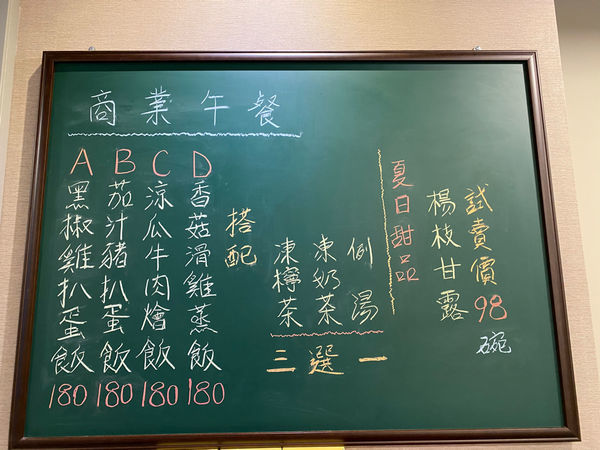 商業午餐
A 黑椒雞扒蛋飯 180
B 茄汁豬扒蛋飯 180
C 涼瓜牛肉燴飯 180
D 香菇滑雞蒸飯 180
搭配
凍檸茶
凍奶茶
例湯
三選一
夏日甜品
楊枝甘露
試賣價98
碗